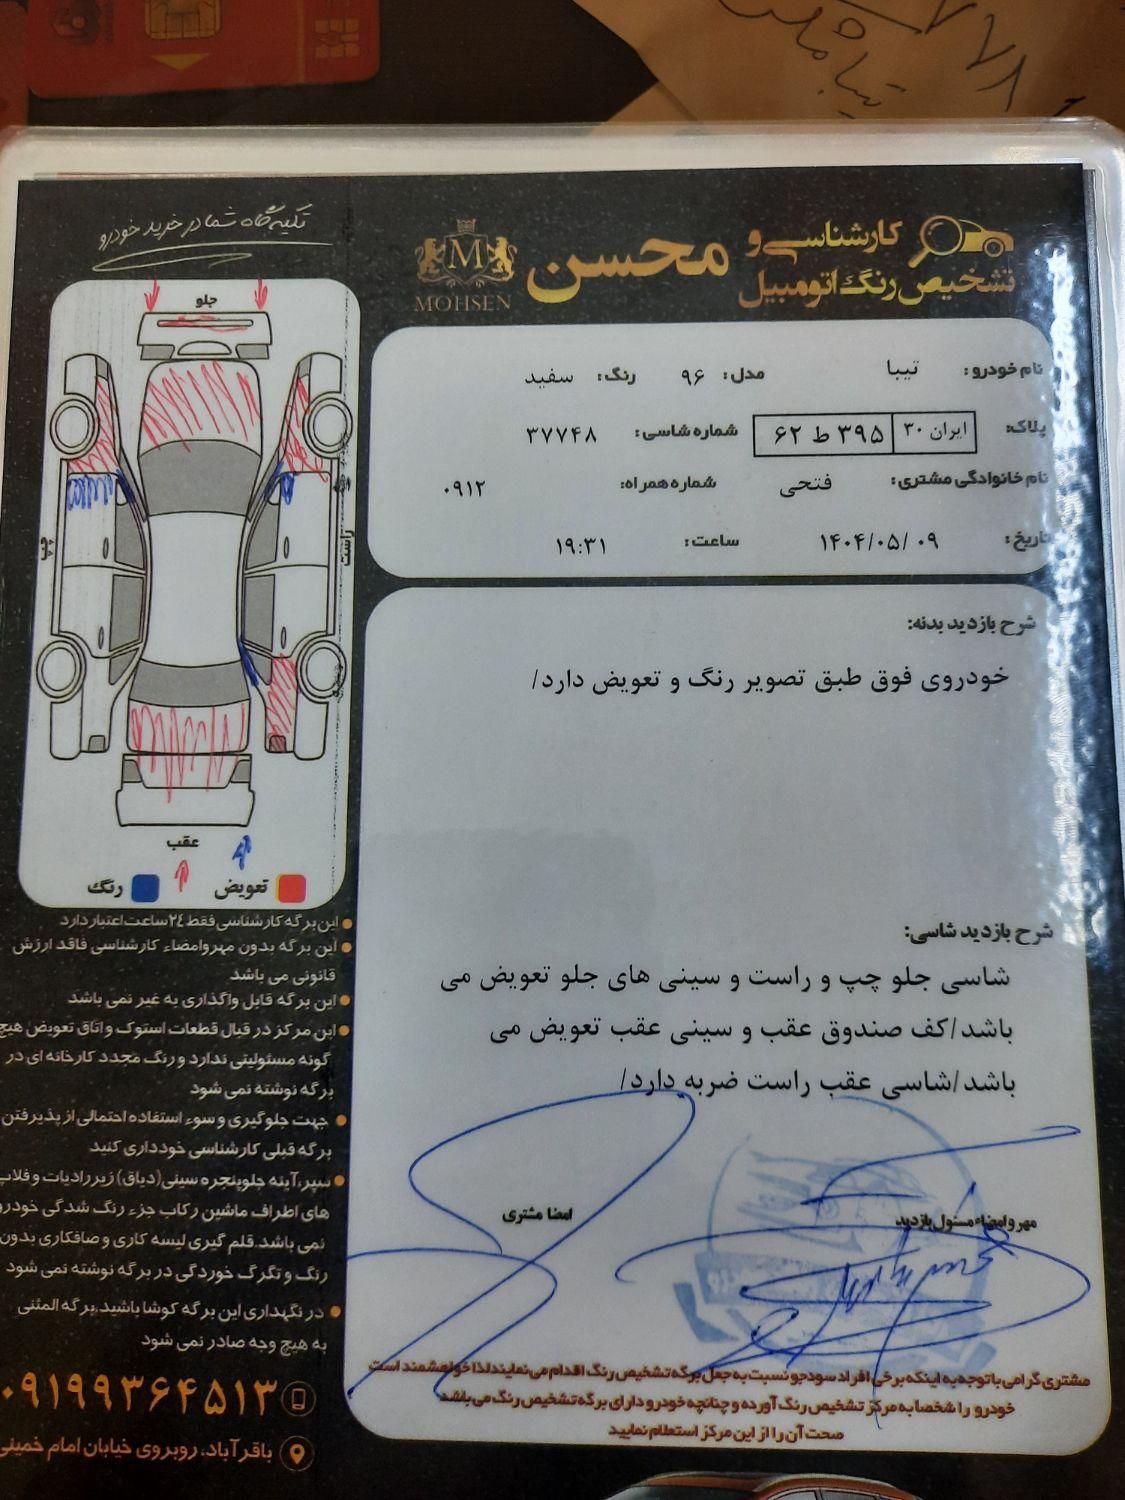 تکیه گاه شما در خرید خودرو
کارشناسی و
تشخیص رنگ اتومبیل
محسن
M
MOHSEN
نام خودرو: تیبا مدل: ۹۶ رنگ: سفید
پلاک: ایران ۳۰ ۳۹۵ ط ۶۲ شماره شاسی: ۳۷۷۴۸
نام خانوادگی مشتری: فتحی شماره همراه: ۰۹۱۲
تاریخ: ۱۴۰۴/۰۵/۰۹ ساعت: ۱۹:۳۱
جلو
چپ
راست
عقب
تعویض رنگ
شرح بازدید بدنه:
خودروی فوق طبق تصویر رنگ و تعویض دارد/
شرح بازدید شاسی:
شاسی جلو چپ و راست و سینی های جلو تعویض می
باشد/کف صندوق عقب و سینی عقب تعویض می
باشد/شاسی عقب راست ضربه دارد/
مهر و امضاء مسئول بازدید
امضا مشتری
مشتری گرامی با توجه به اینکه برخی افراد سودجو نسبت به جعل برگه تشخیص رنگ اقدام می نمایند لذا خواهشمند است
خودرو را شخصاً به مرکز تشخیص رنگ آورده و چنانچه خودرو دارای برگه تشخیص رنگ می باشد
صحت آن را از این مرکز استعلام نمایید
این برگه کارشناسی فقط ۲۴ ساعت اعتبار دارد
این برگه بدون مهر و امضاء کارشناسی فاقد ارزش
قانونی می باشد
این برگه قابل واگذاری به غیر نمی باشد
این مرکز در قبال قطعات استوک و اتاق تعویض هیچ
گونه مسئولیتی ندارد و رنگ مجدد کارخانه ای در
برگه نوشته نمی شود
جهت جلوگیری و سوء استفاده احتمالی از پذیرفتن
برگه قبلی کارشناسی خودداری کنید
سپر،آینه جلوپنجره سینی(دیاق) زیر رادیات و فلاپ
های اطراف ماشین رکاب جزء رنگ شدگی خودرو
نمی باشد.قلم گیری لیسه کاری و صافکاری بدون
رنگ و تگرگ خوردگی در برگه نوشته نمی شود
در نگهداری این برگه کوشا باشید،برگه المثنی
به هیچ وجه صادر نمی شود
۰۹۱۹۹۳۶۴۵۱۳
باقرآباد، روبروی خیابان امام خمینی